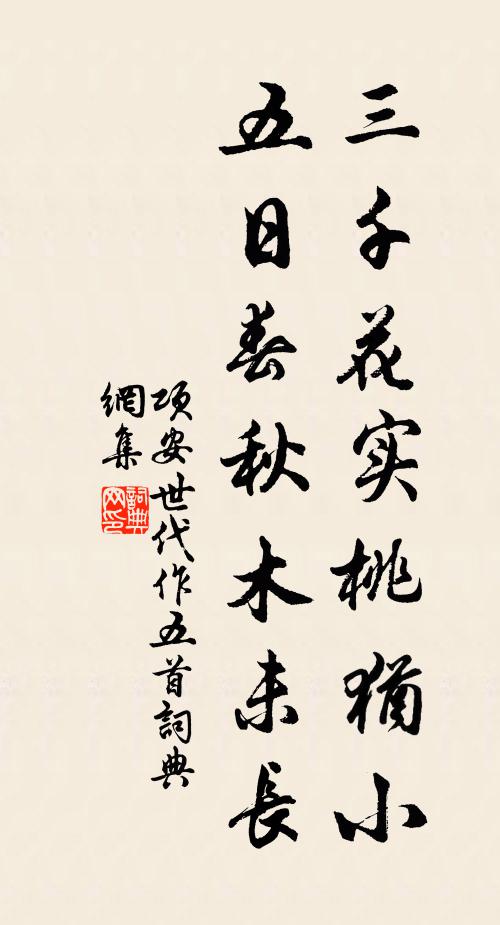 三千花实桃犹小
五日春秋木未長
项安世代作五首詞典
網集
詞典网印